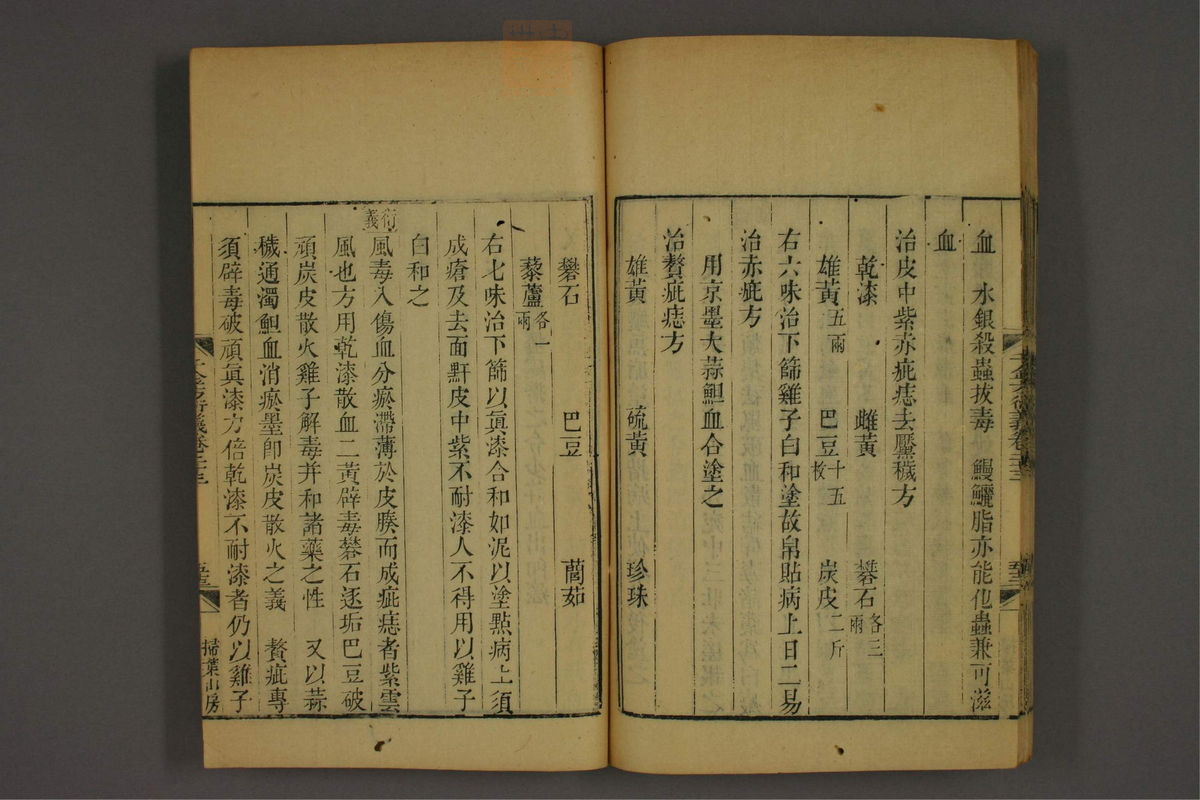 血　水銀殺蟲拔毒　鰻鱺脂亦能化蟲兼可滋
血
治皮中紫赤疵痣去黶穢方
乾漆　雌黃　礬石各三兩
雄黃五兩　巴豆十五枚　炭皮一斤
右六味治下篩雞子白和塗故帛貼病上日二易
治赤疵方
用京墨大蒜䱇血合塗之
治贅疵痣方
雄黃　硫黃　珍珠
礬石　巴豆　藘茹
藜蘆各一兩
右七味治下篩以眞漆合和如泥以塗點病上須
成瘡及去面䵟皮中紫不耐漆人不得用以雞子
白和之
衍義
風毒入傷血分瘀滯薄於皮腠而成疵痣者紫雲
風也方用乾漆散血二黃辟毒礬石逐垢巴豆破
頑炭皮散火雞子解毒并和諸藥之性　又以蒜
穢通濁䱇血消瘀墨卽炭皮散火之義　贅疵專
須辟毒破頑眞漆力倍乾漆不耐漆者仍以雞子
掃葉山房